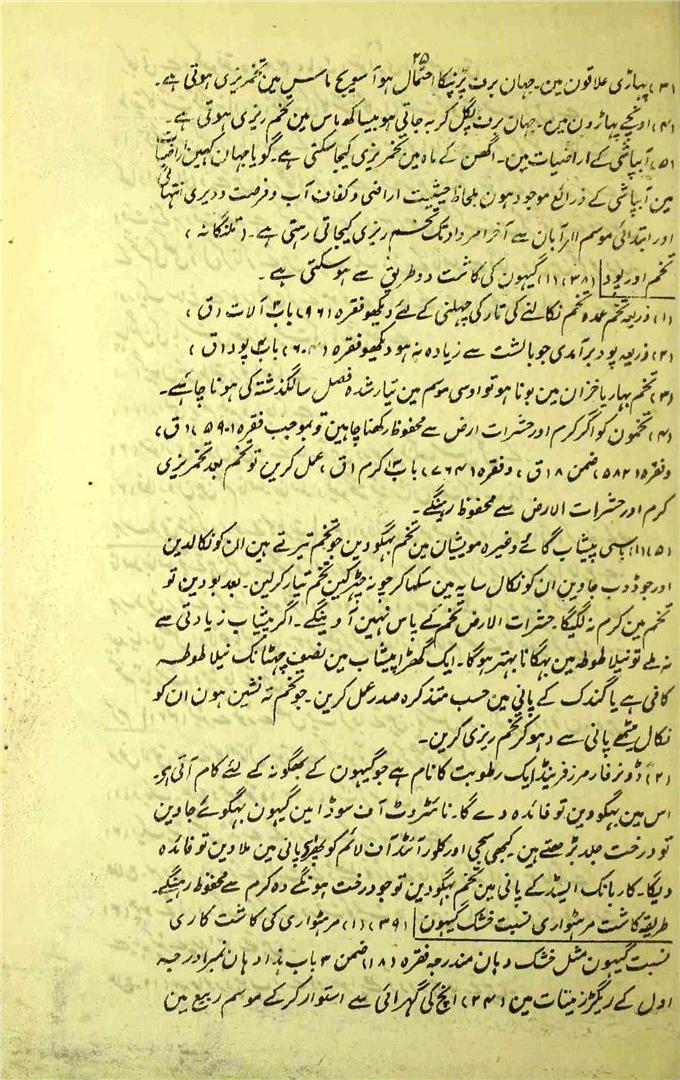 ۲۵
(۳) پہاڑی علاقون مین۔ جہان برف پڑنیکا احتمال ہو آسویج ماس مین تخمریزی ہوتی ہے۔
(۴) اونچے پہاڑون مین۔ جہان برف پگل کر بہ جاتی ہو بیساکھ ماس مین تخم ریزی ہوتی ہے۔
(۵) آبپاشی کے اراضیات مین۔ اگھن کے ماہ مین تخمریزی کیجا سکتی ہے۔ گویا جہان کہین اراضیات
مین آبپاشی کے ذرائع موجود ہون بلحاظ حیثیت اراضی و کفاف آب و فرصت و دیری انتہائی
اور ابتدائی موسم آبان سے آخر امرداد تک تخم ریزی کیجاتی رہتی ہے۔ (تلنگانہ)
تخم اور پود (۳۸) (۱) گیہون کی کاشت دو طریق سے ہو سکتی ہے۔
(۱) ذریعہ تخم عمدہ تخم نکالنے کی تار کی چہلنی کے لئے دیکھو فقرہ (۹۶) باب آلات (ق)
(۲) ذریعہ پود برآمدی جو بالشت سے زیادہ نہ ہو دیکھو فقرہ (۶۰۴) باب پود (ق)
(۳) تخم بہار یا خزان مین بونا ہو تو اوسی موسم مین تیار شدہ فصل سالگذشتہ کی ہونا چاہئے۔
(۴) تخمون کو اگر کرم اور حشرات ارض سے محفوظ رکھنا چاہین تو بموجب فقرہ (۵۹۰) (ق)
و فقرہ (۵۸۲) ضمن ۱۸ ق، و فقرہ (۷۶۴) باب کرم (ق) عمل کرین تو تخم بعد تخمریزی
کرم اور حشرات الارض سے محفوظ رہینگے۔
(۵) (۱) باسی پیشاب گائے وغیرہ مویشیان مین تخم بہگو دین جو تخم تیرتے ہین ان کو نکالدین
اور جو ڈوب جاوین ان کو نکال سایہ مین سکہا کر چونہ چہڑکین تخم تیار کرلین۔ بعد بو دین تو
تخم مین کرم نہ لگیگا۔ حشرات الارض تخم کے پاس نہین آوینگے۔ اگر پیشاب زیادتی سے
نہ ملے تو نیلا طوطہ مین بہگانا بہتر ہوگا۔ ایک گھڑا پیشاب مین نصف چہٹانک نیلا طوطہ
کافی ہے یا گندک کے پانی مین حسب متذکرہ صدر عمل کرین۔ جو تخم تہ نشین ہون ان کو
نکال میٹھے پانی سے دہو کر تخم ریزی کرین۔
(۲) ڈونر فارمرز فرینڈ ایک رطوبت کا نام ہے جو گیہون کے بھگونہ کے لئے کام آتی ہے۔
اس مین بہگو دین تو فائدہ دے گا۔ نائٹروٹ آف سوڈا مین گیہون بہگوئے جاوین
تو درخت جلد بڑھتے ہین۔ کبھی سجی اور کلورائڈ آف لائم کو پانی مین ملا دین تو فائدہ
دیگا۔ کاربانک ایسڈ کے پانی مین تخم بہگو دین تو جو درخت ہونگے وہ کرم سے محفوظ رہینگے۔
طریقہ کاشت مرہٹواری نسبت خشک گیہون (۳۹) (۱) مرہٹواری کی کاشت کاری
نسبت گیہون مثل خشک دہان مندرجہ فقرہ (۱۸) ضمن ۳ باب ہذا دہان نمبر ا درجہ
اول کے ریگڑ زمینات مین (۲۴) انچ کی گہرائی سے استوار کرکے موسم ربیع مین